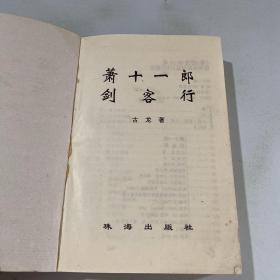 萧十一郎
剑客行
古龙著
珠海出版社